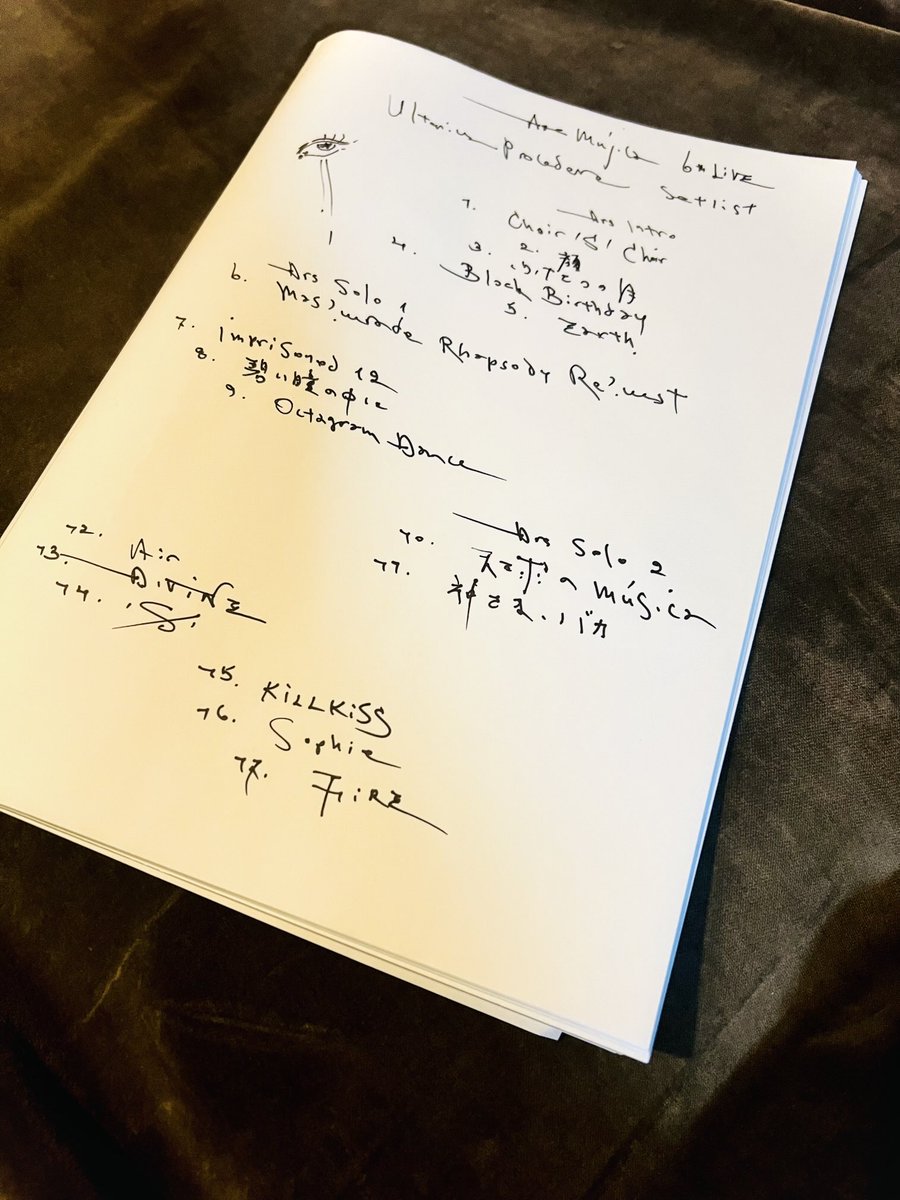 Ave Mújica 6th LIVE
Ulterius Procedere Setlist
Drs Intro
1. Choir 'S' Choir
2. 顔
3. ふたつの月
4. Black Birthday
5. Earth
Drs Solo 1
6. Mas?uerade Rhapsody Re?uest
7. Imprisoned 12
8. 碧い瞳の中に
9. Octagram Dance
Drs Solo 2
10. 天球の Música
11. 神さま、バカ
12. Air
13. DIVINE
14. 'S'
15. KiLLKiSS
16. Sophie
17. FiRE